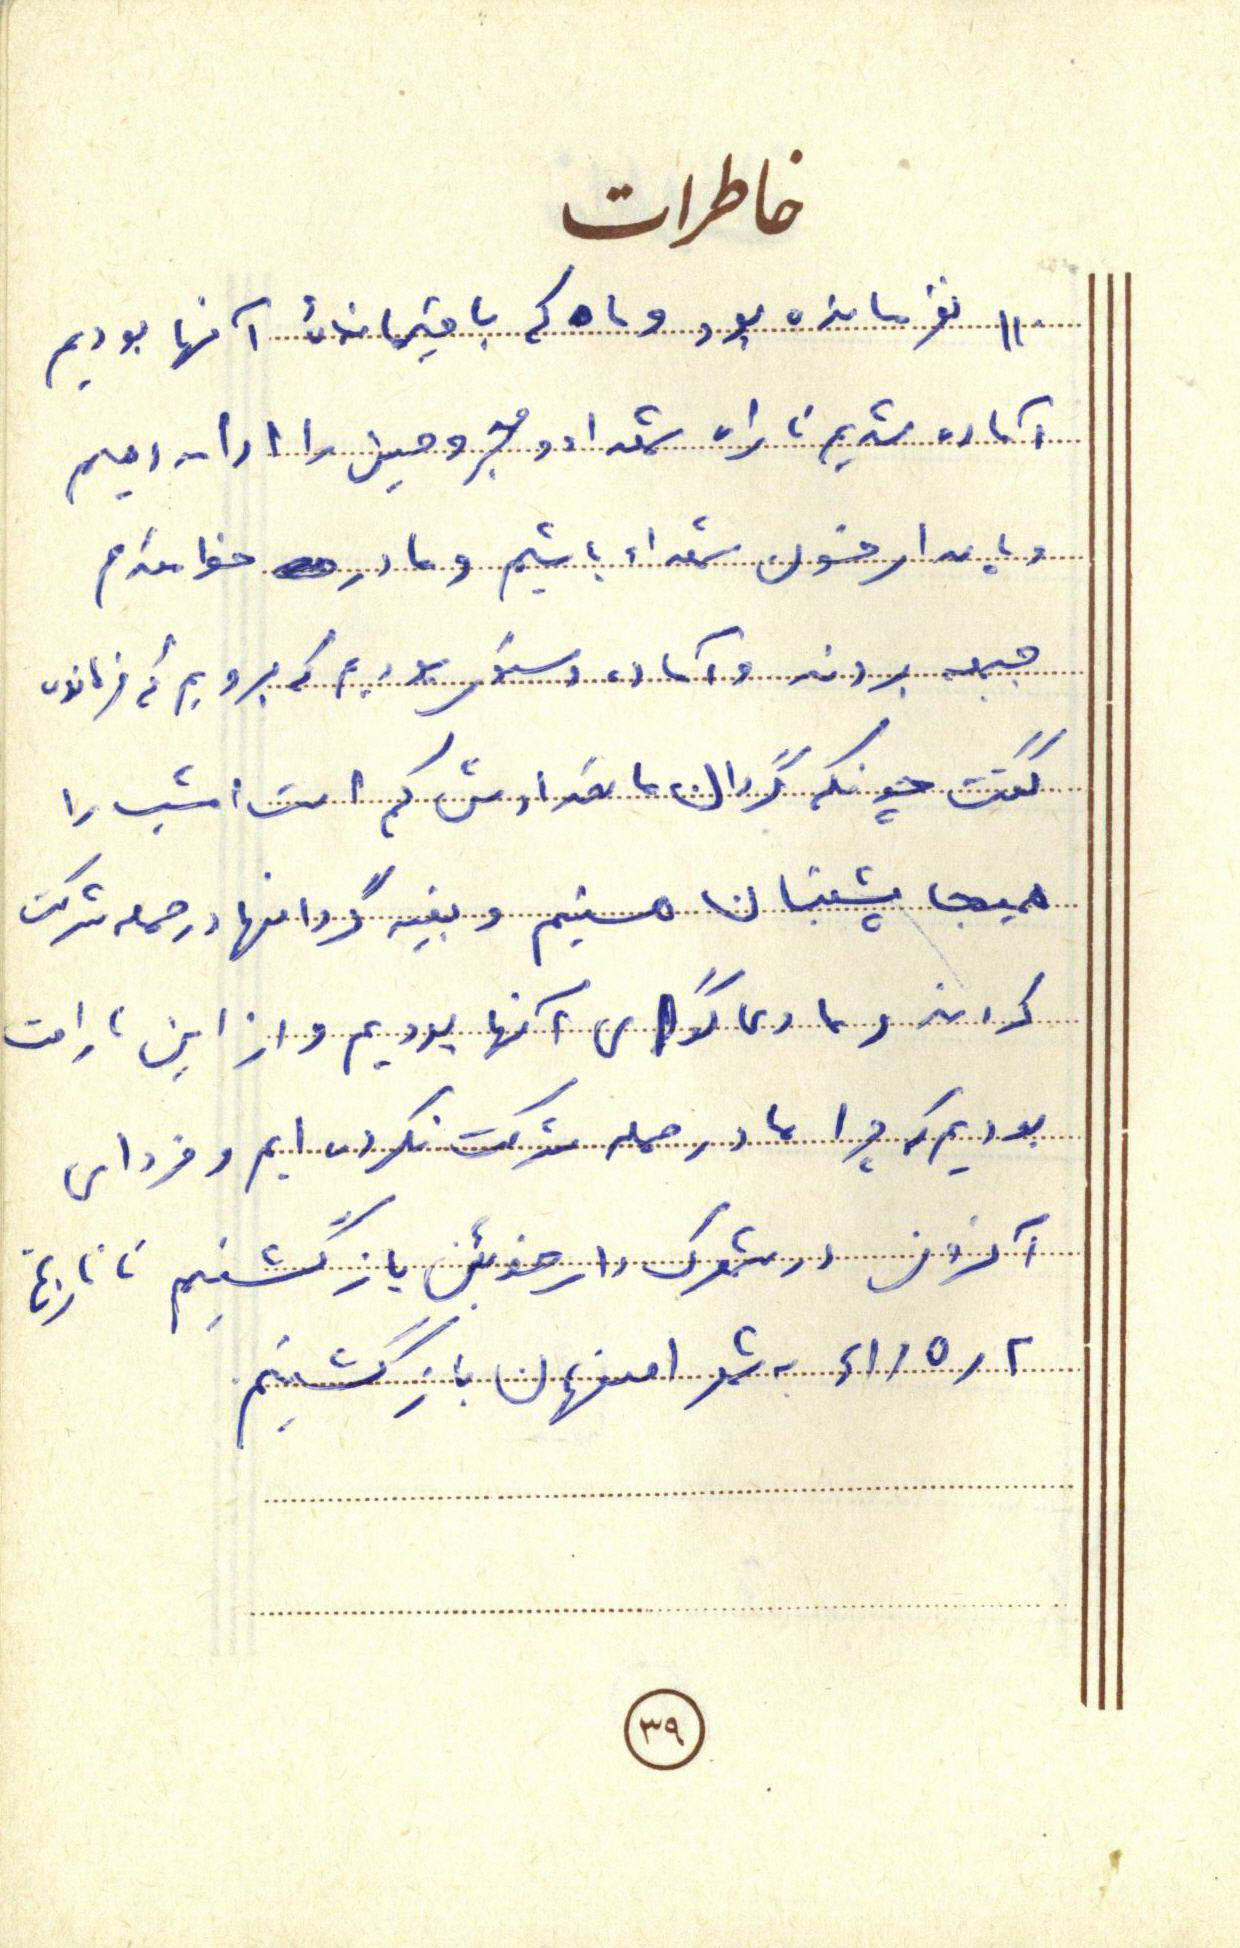 خاطرات
۱۱۰ نفر مانده بود و ما که باقیمانده آنها بودیم
آماده شدیم تا راه شهدا و مجروحین را ادامه دهیم
و پاسدار خون شهداء باشیم و ما در خط
جبهه بردند و آماده دستور بودیم که برویم که فرمانده
گفت چونکه گردان ما تعدادش کم است امشب را
همینجا پشتیبان هستیم و بقیه گردانها در حمله شرکت
کردند و ما دعاگوی آنها بودیم و از این ناراحت
بودیم که چرا ما در حمله شرکت نکرده ایم و فردای
آنروز در شهرک دارخوئین بازگشتیم تا تاریخ
۶۱/۵/۲ به شهر اصفهان بازگشتیم
۳۹